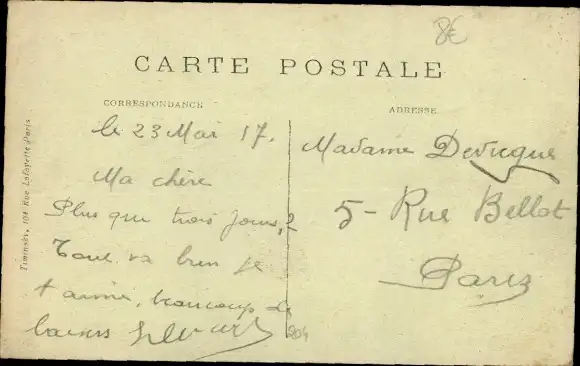 8€
CARTE POSTALE
CORRESPONDANCE
ADRESSE
le 23 Mai 17.
Ma chère
Plus que trois jours,
Tout va bien je
t'aime, beaucoup de
baisers
Madame
5 - Rue Bellot
Paris
Rue Lafayette Paris